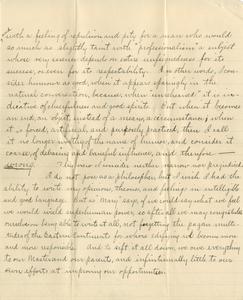 with a feeling of repulsion and pity for a man who would
so much as slightly taint with "professionalism" a subject
whose very essence depends on entire unforcedness for its
success, or even for its respectability. In other words, I con-
sider humour as good, when it appears sparingly in the
natural conversation, because, when "unalloyed" it is in-
dicative of cheerfulness and good spirits. But when it becomes
an end, an object, instead of a means, a circumstance; when
it is forced, artificial, and purposely practiced, then I call
it no longer worthy of the name of humor, and consider it
coarse, of debasing and baneful influence, and therefore
wrong. I hope I'm neither narrow nor prejudiced.
I do not pose as philosopher, but I wish I had the
ability to write my opinions, theories, and feelings in intelligible
and good language. But as "many" says, if we could say what we feel
we would wield superhuman power, so after all we may congratulate
ourselves on being able to write at all, not forgetting the pagan multi-
tudes of the Eastern Continent for whose edifying we become more
and more responsible. And to sift it all down, we owe everything
to our Master and our parents, and infinitesimally little to our
own efforts at improving our opportunities.